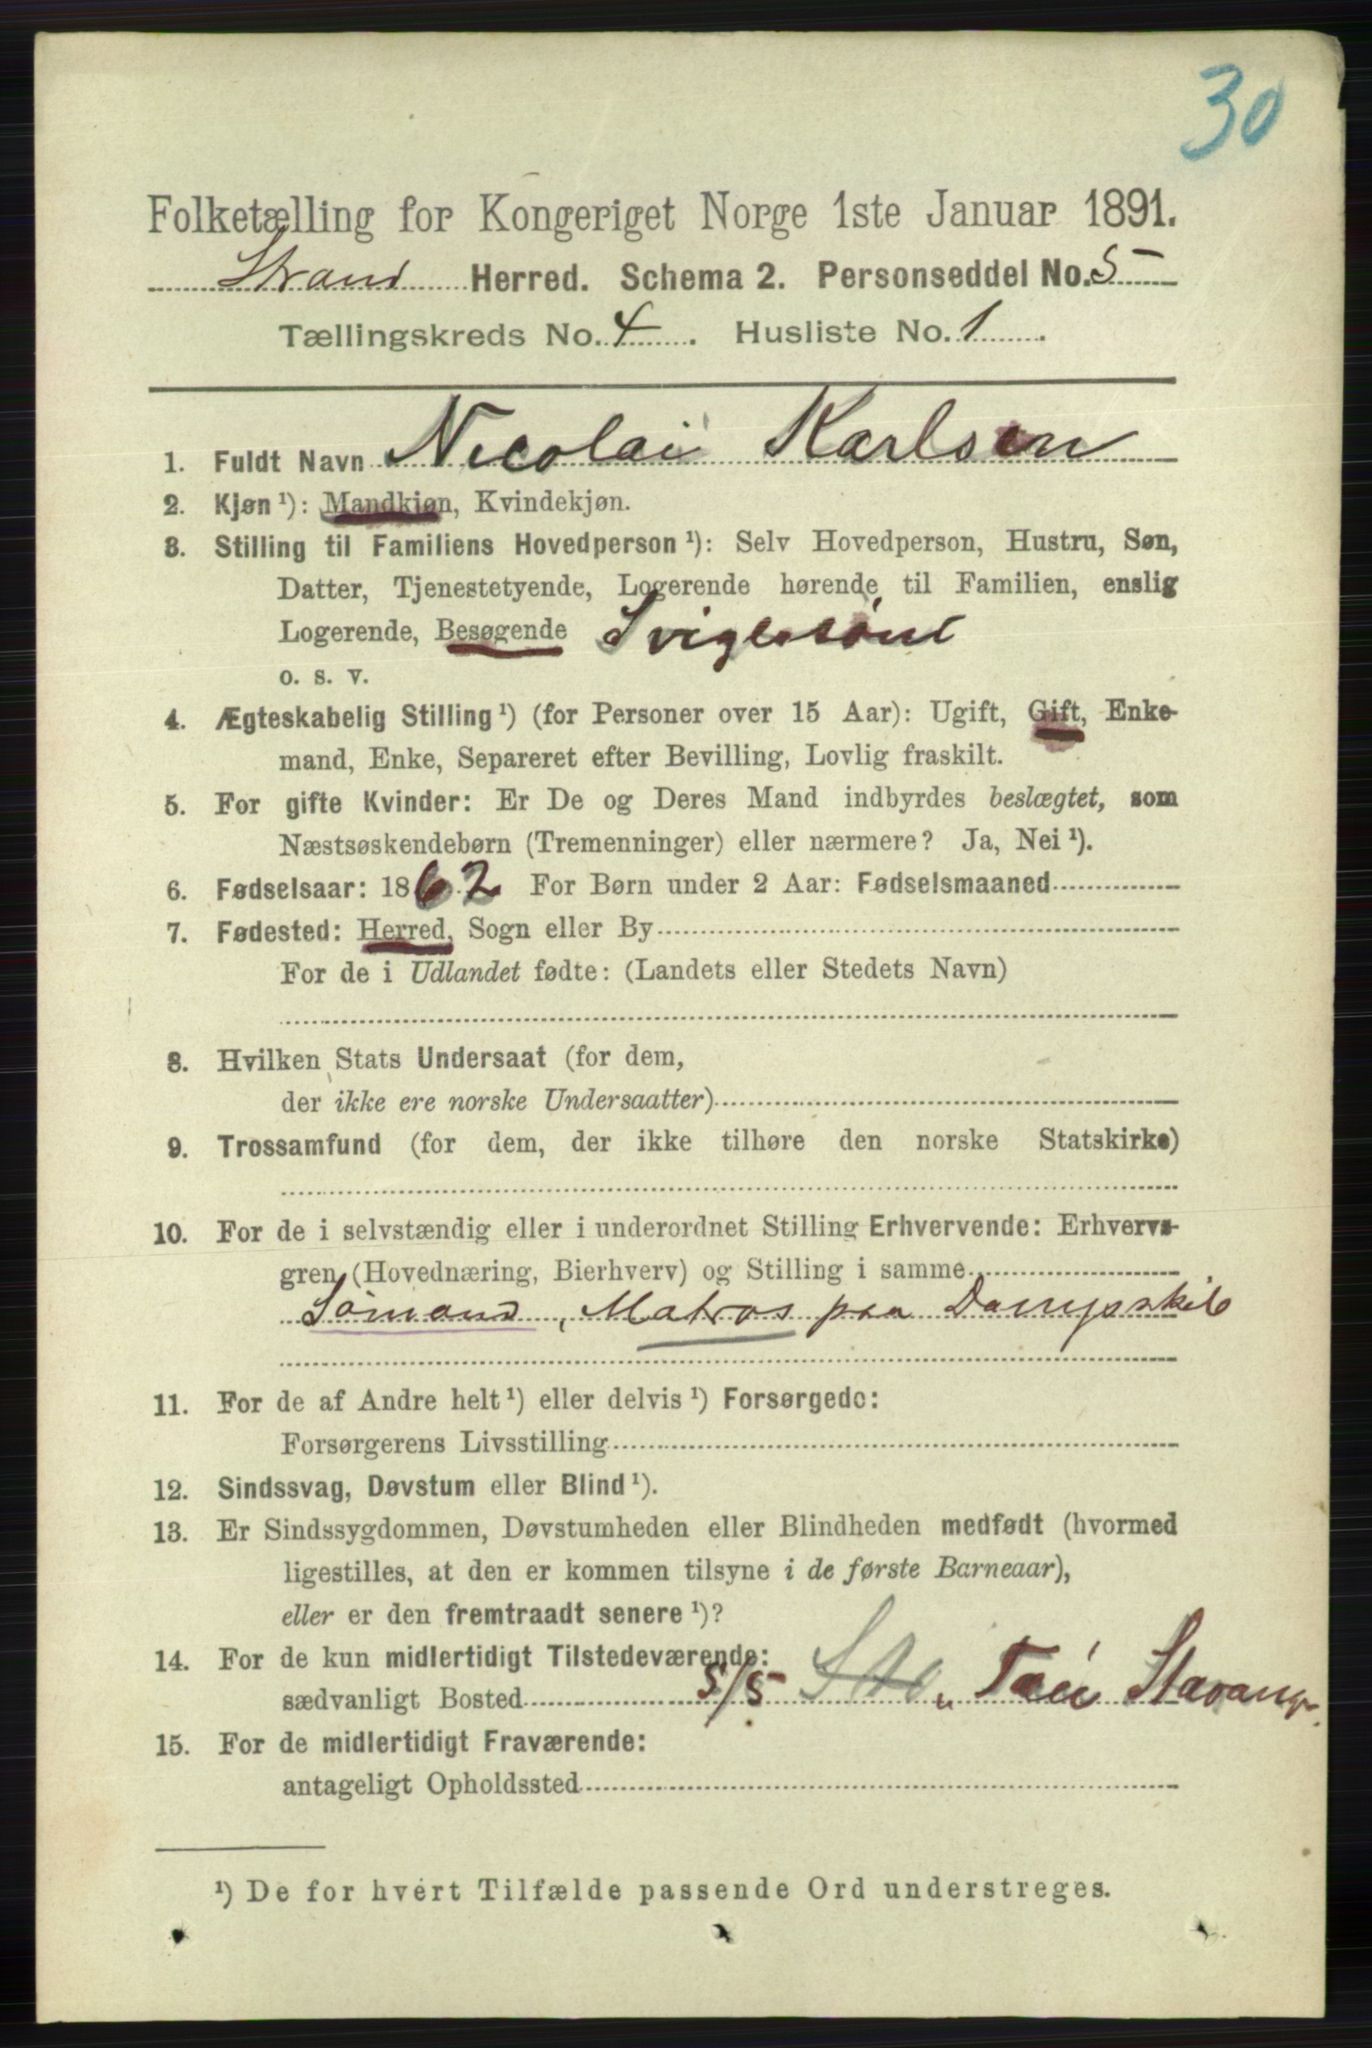 30
Folketælling for Kongeriget Norge 1ste Januar 1891.
Strand Herred. Schema 2. Personseddel No. 5
Tællingskreds No. 4. Husliste No. 1.
1. Fuldt Navn Nicolai Karlsen
2. Kjøn ¹): Mandkjøn, Kvindekjøn.
3. Stilling til Familiens Hovedperson ¹): Selv Hovedperson, Hustru, Søn,
Datter, Tjenestetyende, Logerende hørende til Familien, enslig
Logerende, Besøgende Svigersønl
o. s. v.
4. Ægteskabelig Stilling ¹) (for Personer over 15 Aar): Ugift, Gift, Enke-
mand, Enke, Separeret efter Bevilling, Lovlig fraskilt.
5. For gifte Kvinder: Er De og Deres Mand indbyrdes beslægtet, som
Næstsøskendebørn (Tremenninger) eller nærmere? Ja, Nei ¹).
6. Fødselsaar: 1862 For Børn under 2 Aar: Fødselsmaaned
7. Fødested: Herred, Sogn eller By
For de i Udlandet fødte: (Landets eller Stedets Navn)
8. Hvilken Stats Undersaat (for dem,
der ikke ere norske Undersaatter)
9. Trossamfund (for dem, der ikke tilhøre den norske Statskirke)
10. For de i selvstændig eller i underordnet Stilling Erhvervende: Erhvervs-
gren (Hovednæring, Bierhverv) og Stilling i samme
Sømand, Matros paa Dampskib
11. For de af Andre helt ¹) eller delvis ¹) Forsørgede:
Forsørgerens Livsstilling
12. Sindssvag, Døvstum eller Blind ¹).
13. Er Sindssygdommen, Døvstumheden eller Blindheden medfødt (hvormed
ligestilles, at den er kommen tilsyne i de første Barneaar),
eller er den fremtraadt senere ¹)?
14. For de kun midlertidigt Tilstedeværende:
sædvanligt Bosted S/S Stavang
15. For de midlertidigt Fraværende:
antageligt Opholdssted
¹) De for hvert Tilfælde passende Ord understreges.